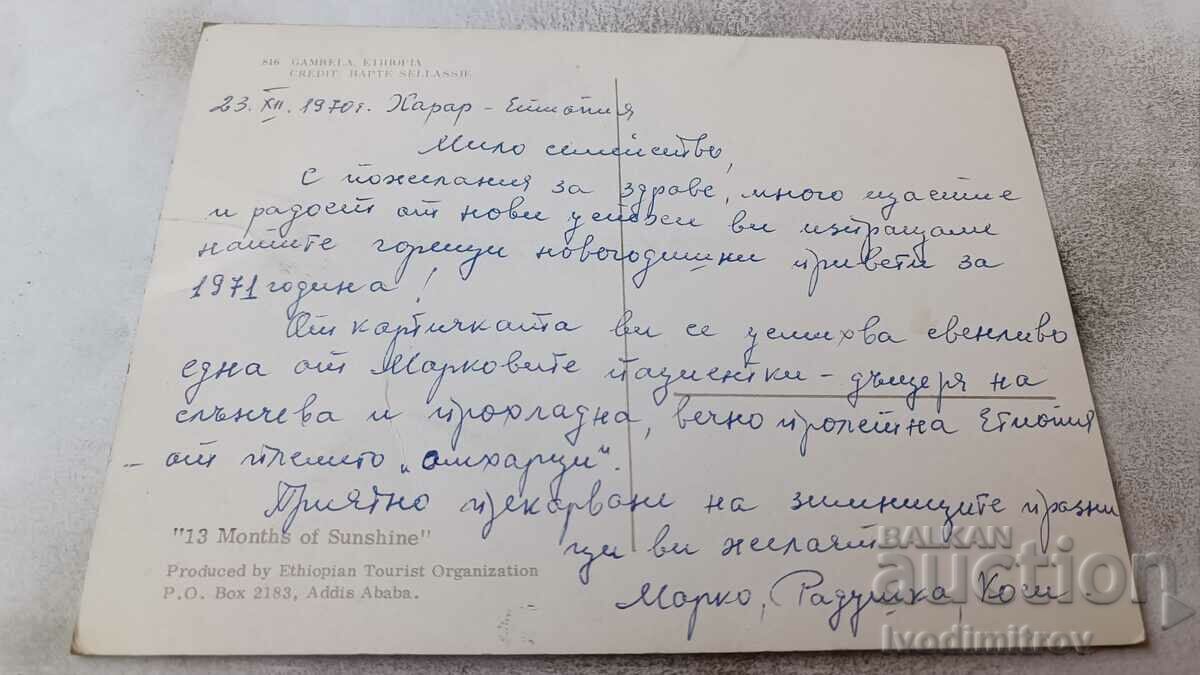 816 GAMBELA, ETHIOPIA
CREDIT: HAPTE SELLASSIE
23.XII.1970г. Харар - Етиопия
Мило семейство,
С пожелания за здраве, много щастие
и радост от нови успехи ви изпращаме
нашите горещи новогодишни привети за
1971 година!
От картичката ви се усмихва свенливо
една от Марковите пациентки - дъщеря на
слънчева и прохладна, вечно пролетна Етиопия
- от племето „амхарци".
Приятно прекарване на зимниците празни
ци ви желаят
Марко, Радушка,
"13 Months of Sunshine"
Produced by Ethiopian Tourist Organization
P.O. Box 2183, Addis Ababa.
BALKAN
auction
Ivodimitrov